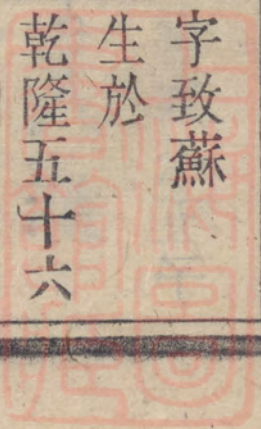 字致蘇
生於
乾隆五十六